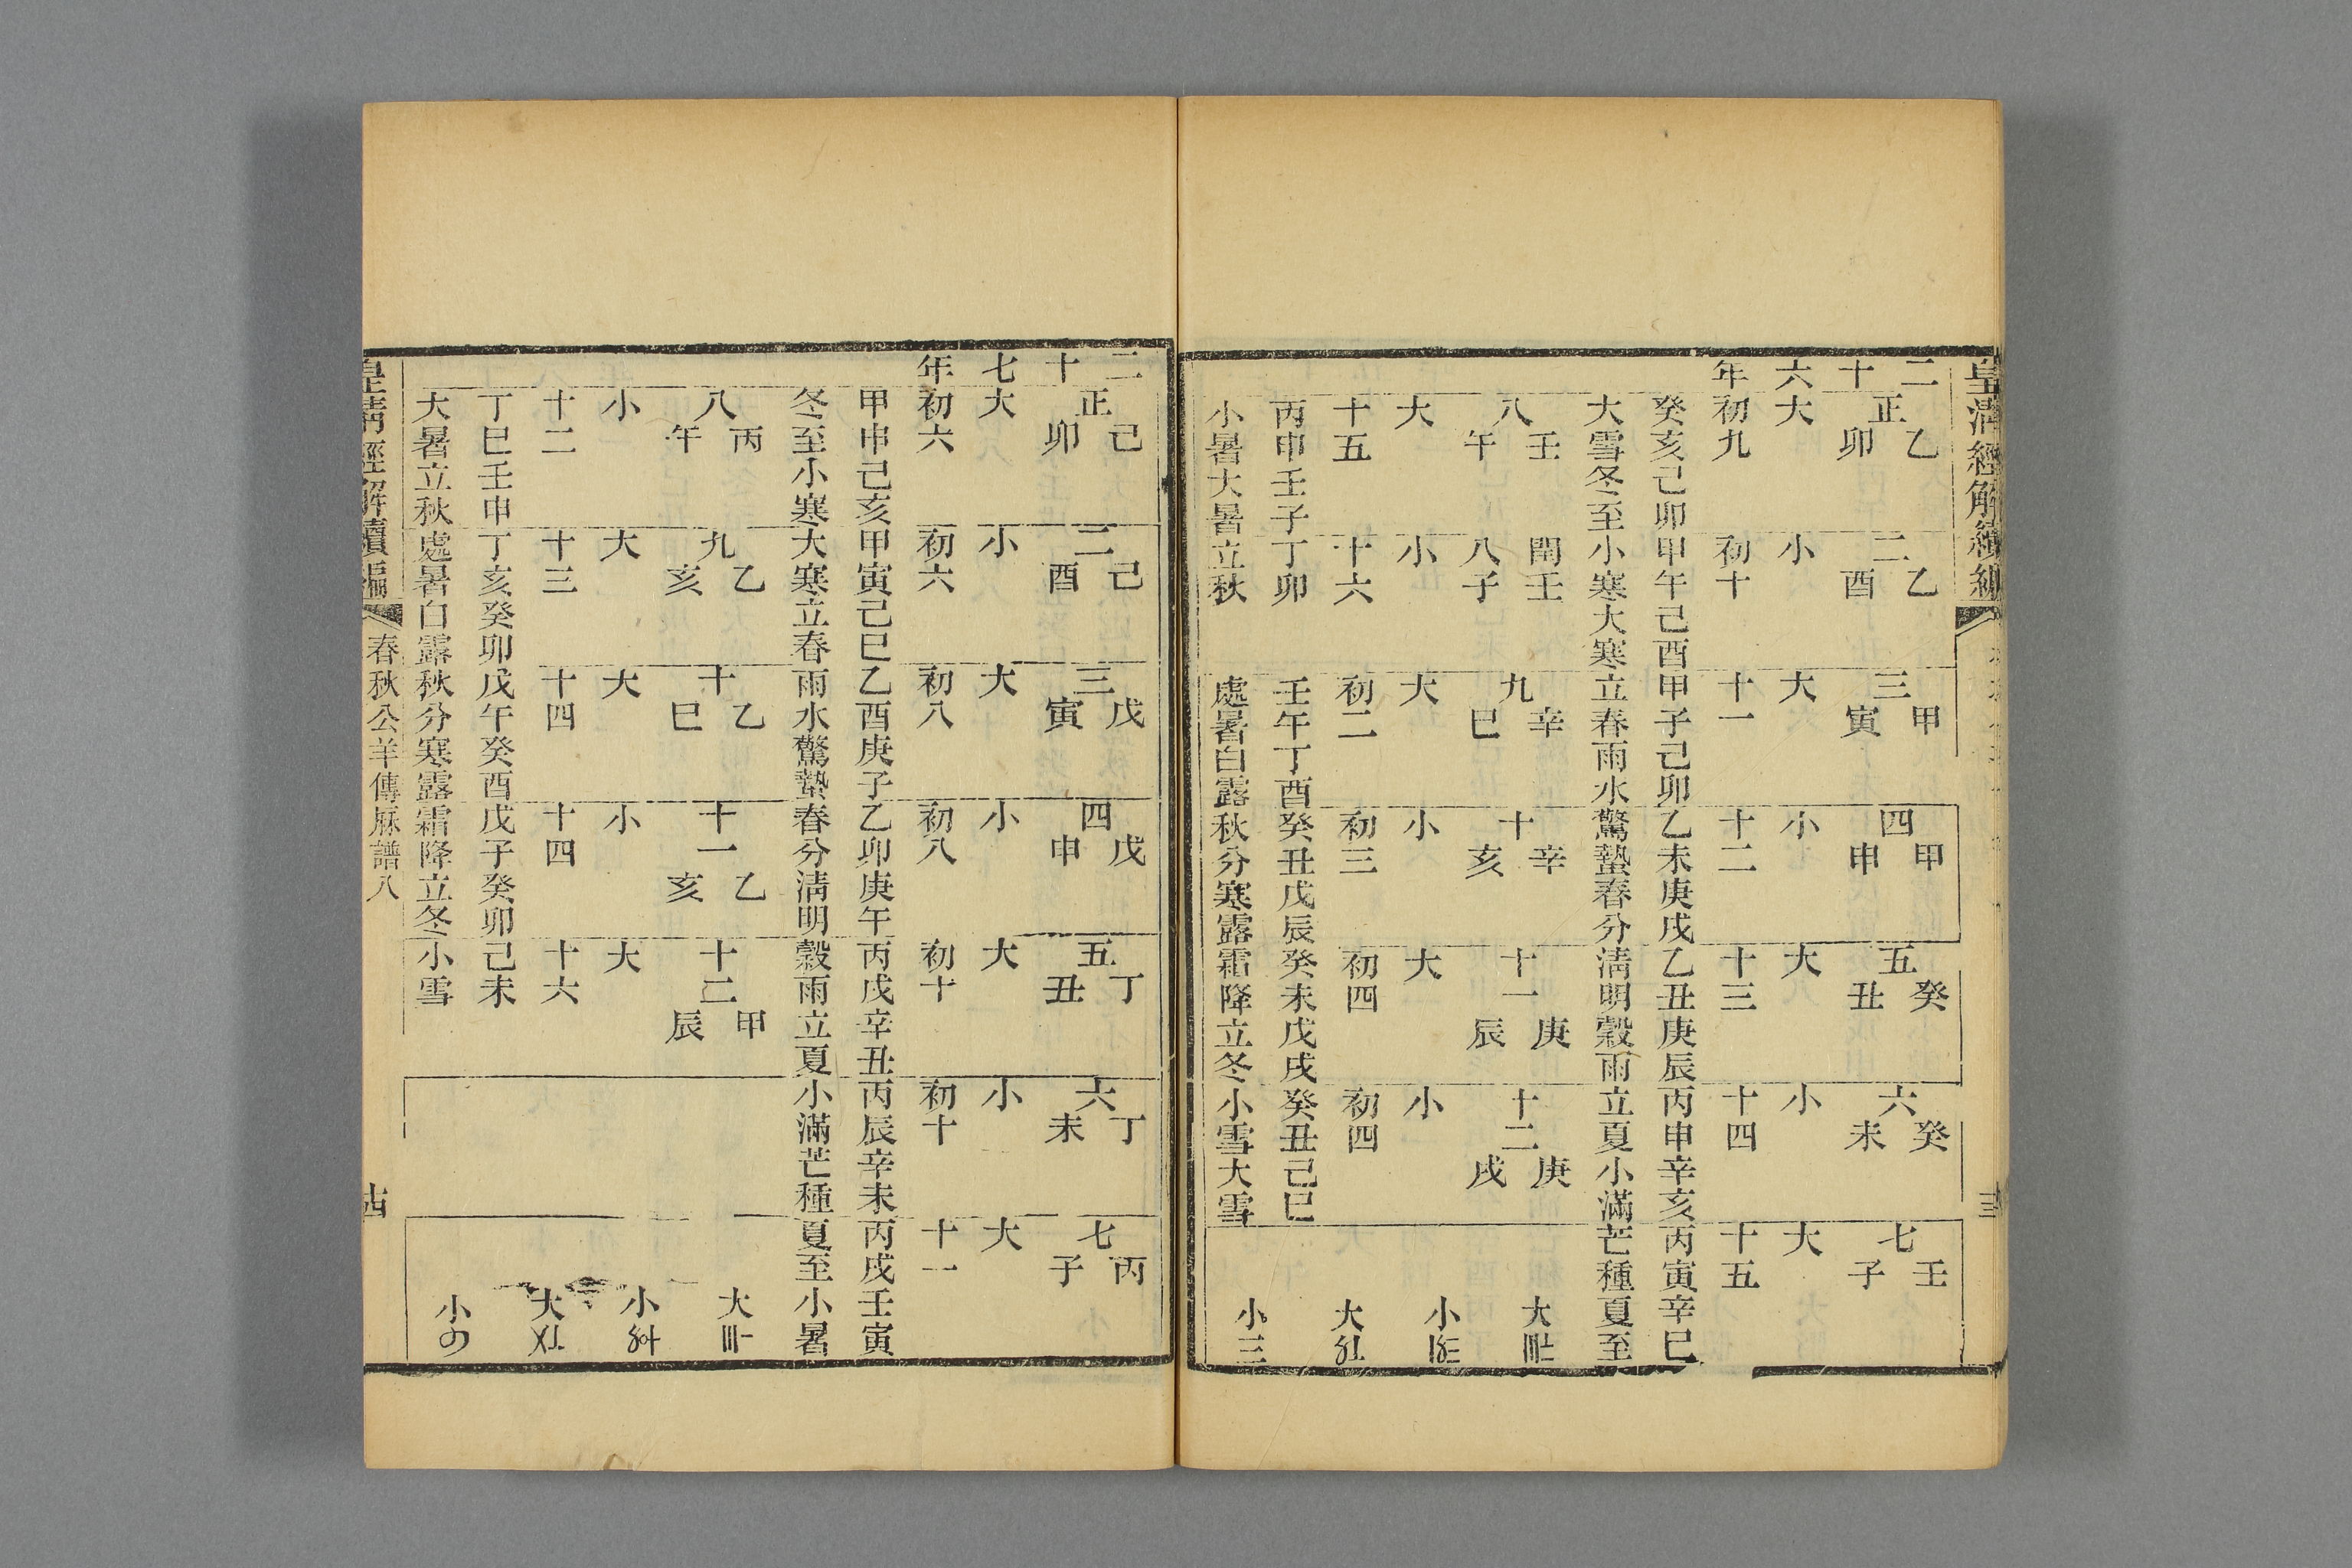 皇清經解續編
二十六年
正乙卯 二乙酉 三甲寅 四甲申 五癸丑 六癸未 七壬子
大 小 大 小 大 小 大
初九 初十 十一 十二 十三 十四 十五
癸亥己卯 甲午己酉 甲子己卯 乙未庚戌 乙丑庚辰 丙申辛亥 丙寅辛巳
大雪冬至 小寒大寒 立春雨水 驚蟄春分 清明穀雨 立夏小滿 芒種夏至
八壬午 閏八壬子 九辛巳 十辛亥 十一庚辰 十二庚戌 大
大 小 大 小 大 小 小
十五 十六 初二 初三 初四 初四 大
丙申壬子 丁卯 壬午丁酉 癸丑戊辰 癸未戊戌 癸丑己巳
小暑大暑 立秋 處暑白露 秋分寒露 霜降立冬 小雪大雪 小三
二十七年
正己卯 二己酉 三戊寅 四戊申 五丁丑 六丁未 七丙子
大 小 大 小 大 小 大
初六 初六 初八 初八 初十 初十 十一
甲申己亥 甲寅己巳 乙酉庚子 乙卯庚午 丙戌辛丑 丙辰辛未 丙戌壬寅
冬至小寒 大寒立春 雨水驚蟄 春分清明 穀雨立夏 小滿芒種 夏至小暑
八丙午 九乙亥 十乙巳 十一乙亥 十二甲辰 大
小 大 大 小 大 小
十二 十三 十四 十四 十六 大
丁巳壬申 丁亥癸卯 戊午癸酉 戊子癸卯 己未
大暑立秋 處暑白露 秋分寒露 霜降立冬 小雪 小
皇清經解續編 春秋公羊傳厤譜八 十四